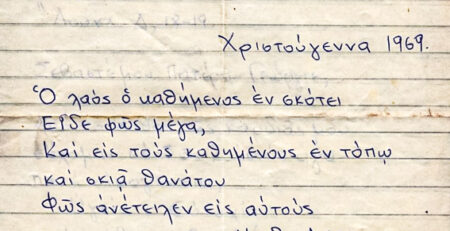 Χριστούγεννα 1969.
Ὁ λαός ὁ καθήμενος ἐν σκότει
Εἶδε φῶς μέγα,
Καί εἰς τούς καθημένους ἐν τόπῳ
καί σκιᾷ θανάτου
Φῶς ἀνέτειλεν εἰς αὐτούς